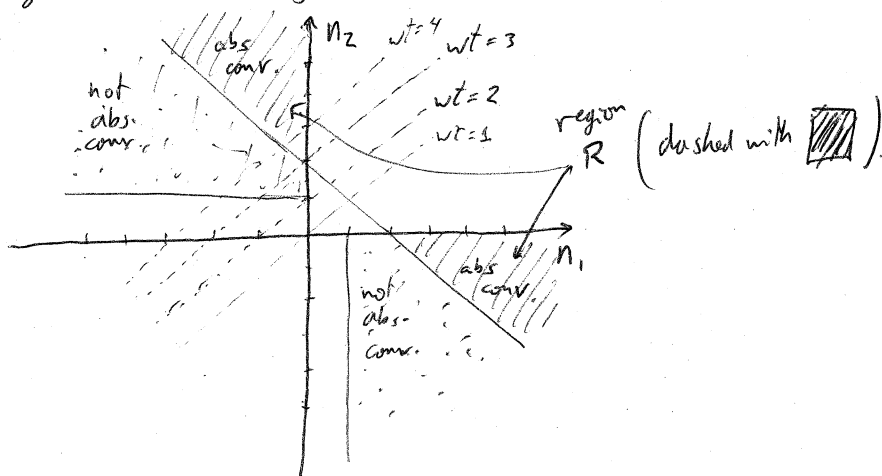 n2
wt=4
wt=3
wt=2
wt=1
abs
conv.
not
abs.
conv.
region
R (dashed with ).
n1
abs
conv.
not
abs.
conv.